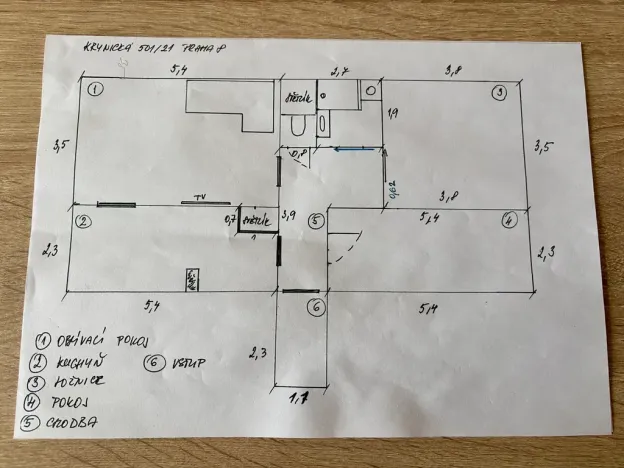 KRYNICKÁ 501/21 PRAHA 8
5,4
2,7
3,8
1
3
ŠTĚRÍK
1,9
3,5
3,5
0,8
0,62
TV
3,8
2
0,7
ŠTĚRÍK
3,9
5
5,4
4
1
2,3
2,3
5,4
6
5,4
1 OBÝVACÍ POKOJ
2,3
2 KUCHYŇ
6 VSTUP
3 LOŽNICE
1,7
4 POKOJ
5 CHODBA